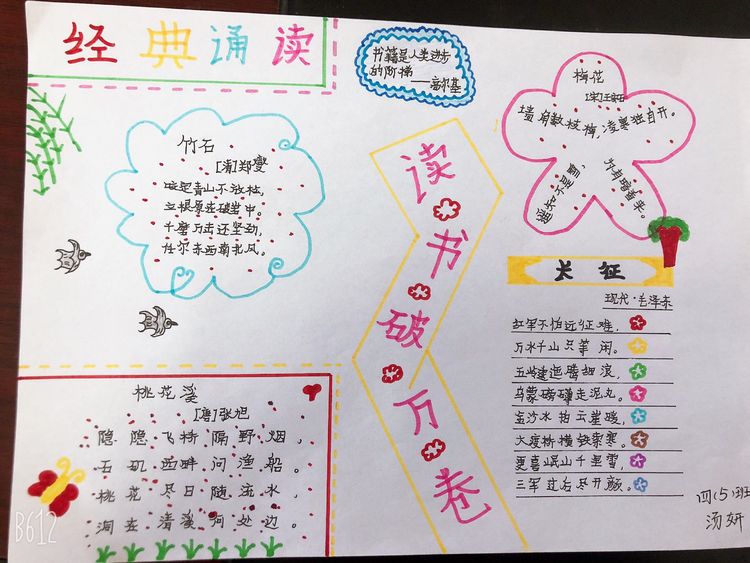 经典诵读
书籍是人类进步
的阶梯
——高尔基
竹石
[清]郑燮
咬定青山不放松，
立根原在破岩中。
千磨万击还坚劲，
任尔东西南北风。
读书破万卷
梅花
[宋]王安石
墙角数枝梅，凌寒独自开。
遥知不是雪，
为有暗香来。
长征
现代·毛泽东
红军不怕远征难，
万水千山只等闲。
五岭逶迤腾细浪，
乌蒙磅礴走泥丸。
金沙水拍云崖暖，
大渡桥横铁索寒。
更喜岷山千里雪，
三军过后尽开颜。
桃花溪
[唐]张旭
隐隐飞桥隔野烟，
石矶西畔问渔船。
桃花尽日随流水，
洞在清溪何处边。
四(5)班
汤妍
B612